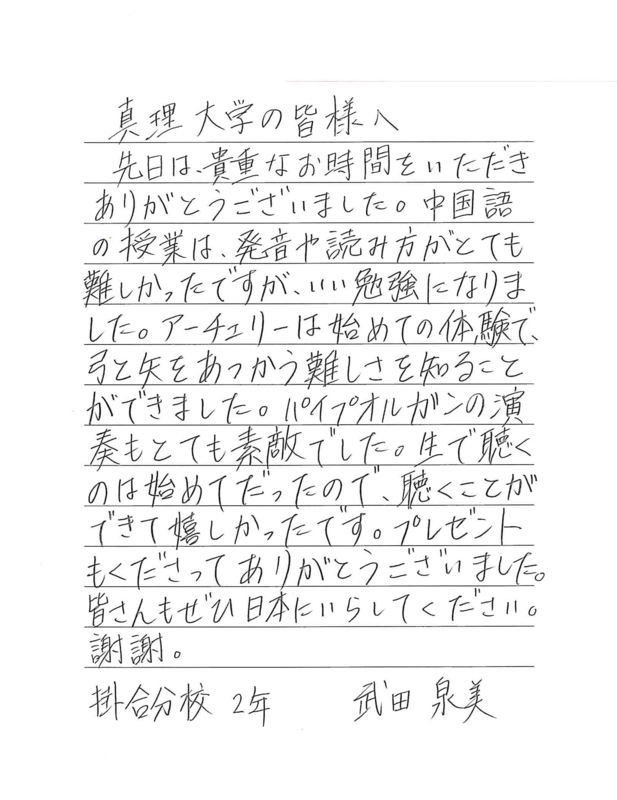 真理大学の皆様へ
先日は、貴重なお時間をいただき
ありがとうございました。中国語
の授業は、発音や読み方がとても
難しかったですが、いい勉強になりま
した。アーチェリーは始めての体験で、
弓と矢をあつかう難しさを知ること
ができました。パイプオルガンの演
奏もとても素敵でした。生で聴く
のは始めてだったので、聴くことが
できて嬉しかったです。プレゼント
もくださってありがとうございました。
皆さんもぜひ日本にいらしてください。
謝謝。
掛合分校 2年 武田 泉美